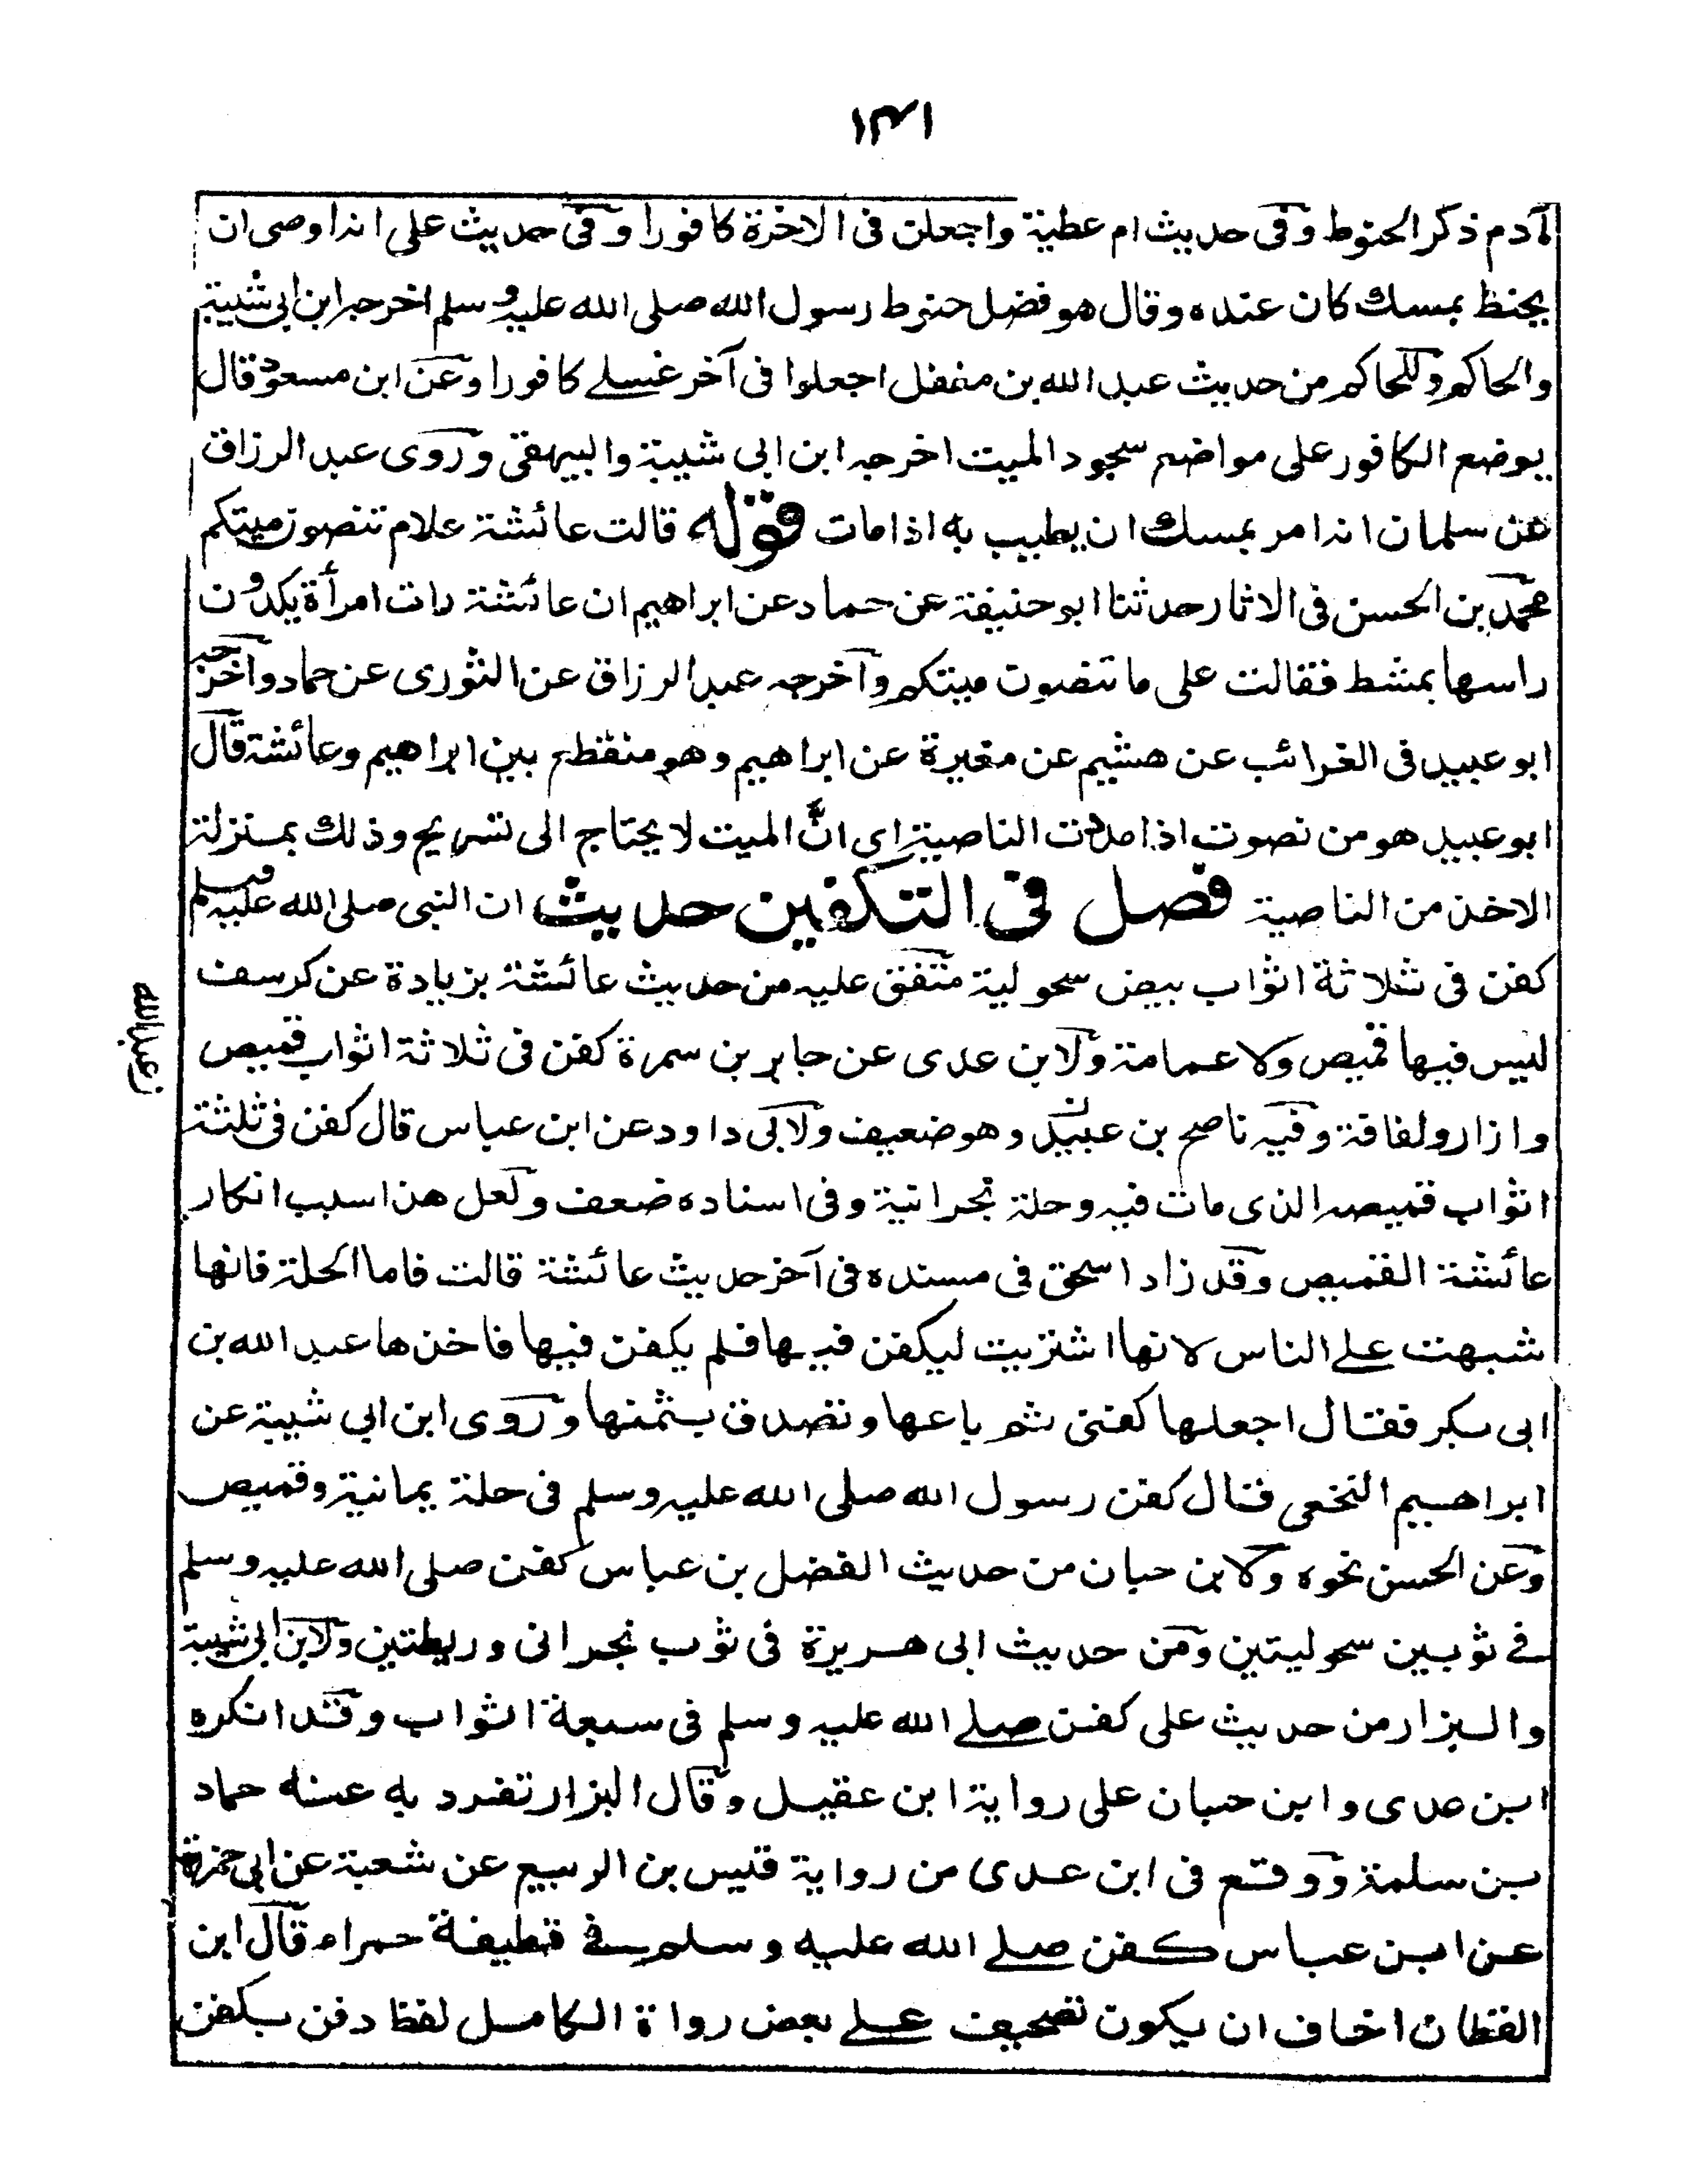 ١٣١
لآدم ذكر الحنوط وفى حديث ام عطية واجعلن فى الاخرة كافورا وفى حديث على انه اوصى ان
يحنط بمسك كان عنده وقال هو فضل حنوط رسول الله صلى الله عليه وسلم اخرجه ابن ابى شيبة
والحاكم وللحاكم من حديث عبد الله بن مغفل اجعلوا فى آخر غسلے كافورا وعن ابن مسعود قال
يوضع الكافور على مواضع سجود الميت اخرجه ابن ابى شيبة والبيهقى وروى عبد الرزاق
عن سلمان انه امر بمسك ان يطيب به اذا مات قوله قالت عائشة علام تنصون ميتكم
محمد بن الحسن فى الاثار حدثنا ابو حنيفة عن حماد عن ابراهيم ان عائشة رات امرأة يكدون
راسها بمشط فقالت على ما تنصون ميتكم وآخرجه عبد الرزاق عن الثورى عن حماد وآخرجه
ابو عبيد فى الغرائب عن هشيم عن مغيرة عن ابراهيم وهو منقطع بين ابراهيم وعائشة قال
ابو عبيد هو من نصوت اذا مددت الناصية اى انّ الميت لا يحتاج الى تسريح وذلك بمنزلة
الاخذ من الناصية فصل فى التكفين حديث ان النبى صلى الله عليه وسلم
كفن فى ثلاثة اثواب بيض سحولية متفق عليه من حديث عائشة بزيادة عن كرسف
ليس فيها قميص ولا عمامة ولابن عدى عن جابر بن سمرة كفن فى ثلاثة اثواب قميص
وازار ولفافة وفيه ناصح بن عبيد وهو ضعيف ولابى داود عن ابن عباس قال كفن فى ثلثة
ن عبدالله
اثواب قميصه الذى مات فيه وحلة نجرانية وفى اسناده ضعف ولعل هذا سبب انكار
عائشة القميص وقد زاد اسحق فى مسنده فى آخر حديث عائشة قالت فاما الحلة فانها
شبهت علے الناس لانها اشتريت ليكفن فيها فلم يكفن فيها فاخذها عبد الله بن
ابى بكر فقال اجعلها كفنى ثم باعها وتصدق بثمنها وروى ابن ابى شيبة عن
ابراهيم النخعى قال كفن رسول الله صلى الله عليه وسلم فى حلة يمانية وقميص
وعن الحسن نحوه ولابن حبان من حديث الفضل بن عباس كفن صلى الله عليه وسلم
فے ثوبين سحوليتين ومن حديث ابى هريرة فى ثوب نجرانى وريطتين ولابن ابى شيبة
والبزار من حديث على كفن صلے الله عليه وسلم فى سبعة اثواب وقد انكره
ابن عدى وابن حبان على رواية ابن عقيل وقال البزار تفرد به عنه حماد
بن سلمة ووقع فى ابن عدى من رواية قيس بن الربيع عن شعبة عن ابى حمزة
عن ابن عباس كفن صلے الله عليه وسلم فے قطيفة حمراء قال ابن
القطان اخاف ان يكون تصحيف علے بعض رواة الكامل لفظ دفن بكفن